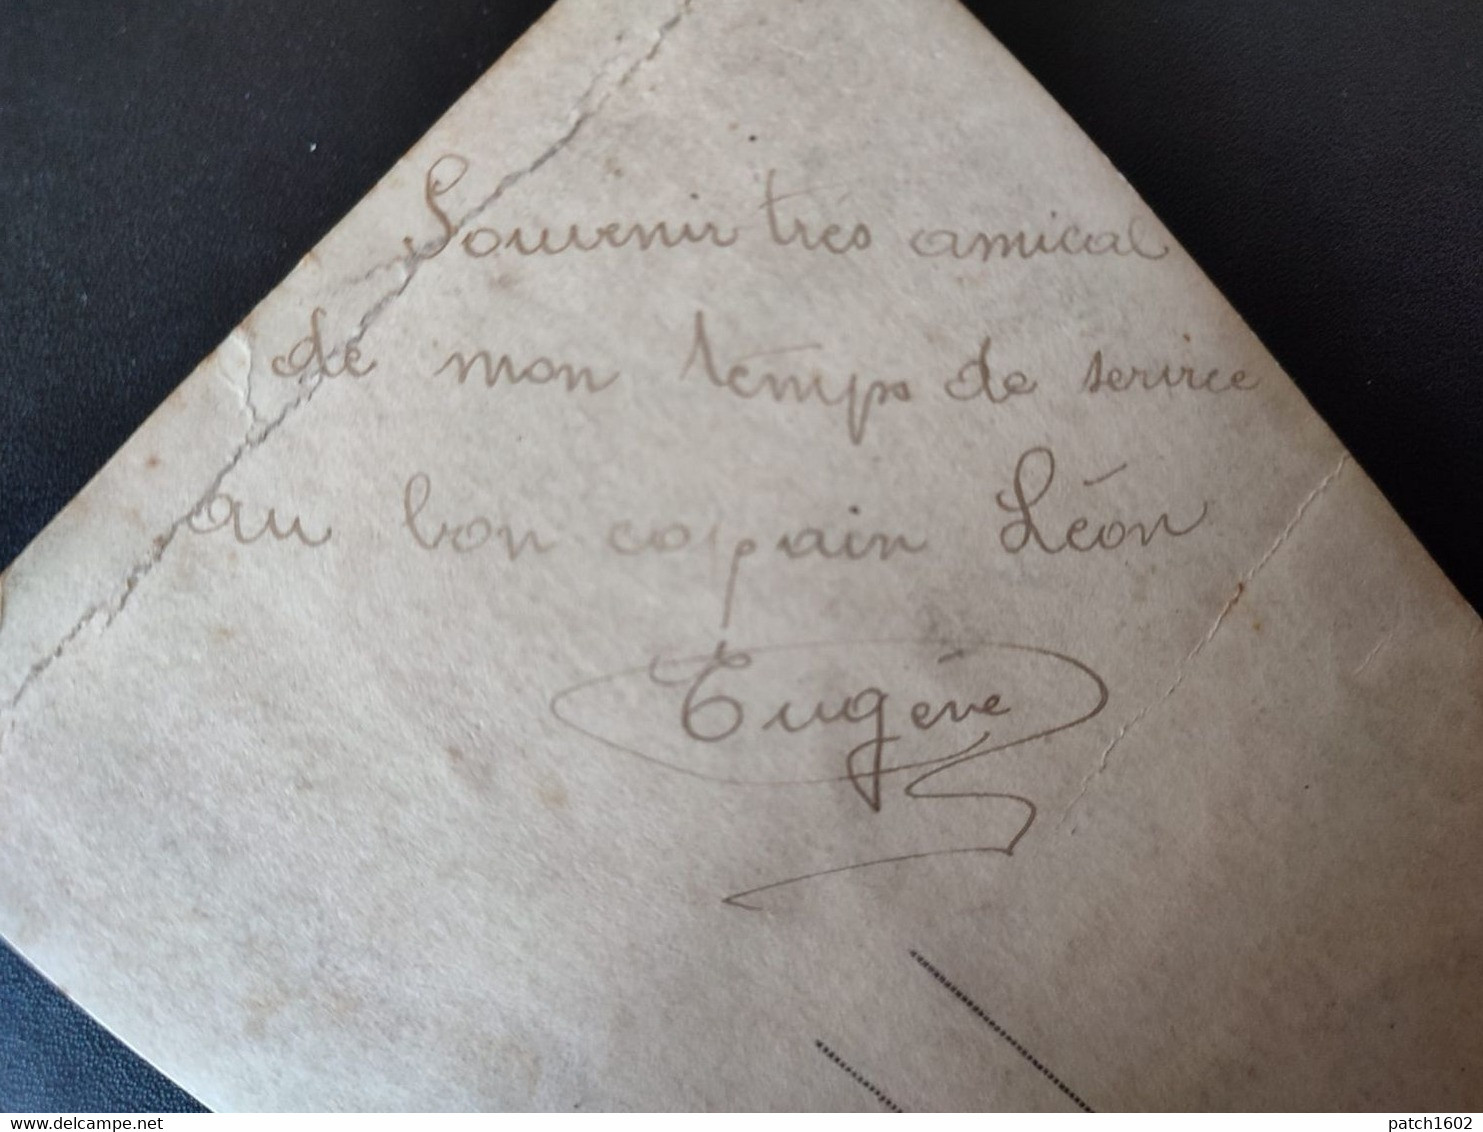 Souvenir très amical
de mon temps de service
au bon copain Léon
Eugène
patch1602